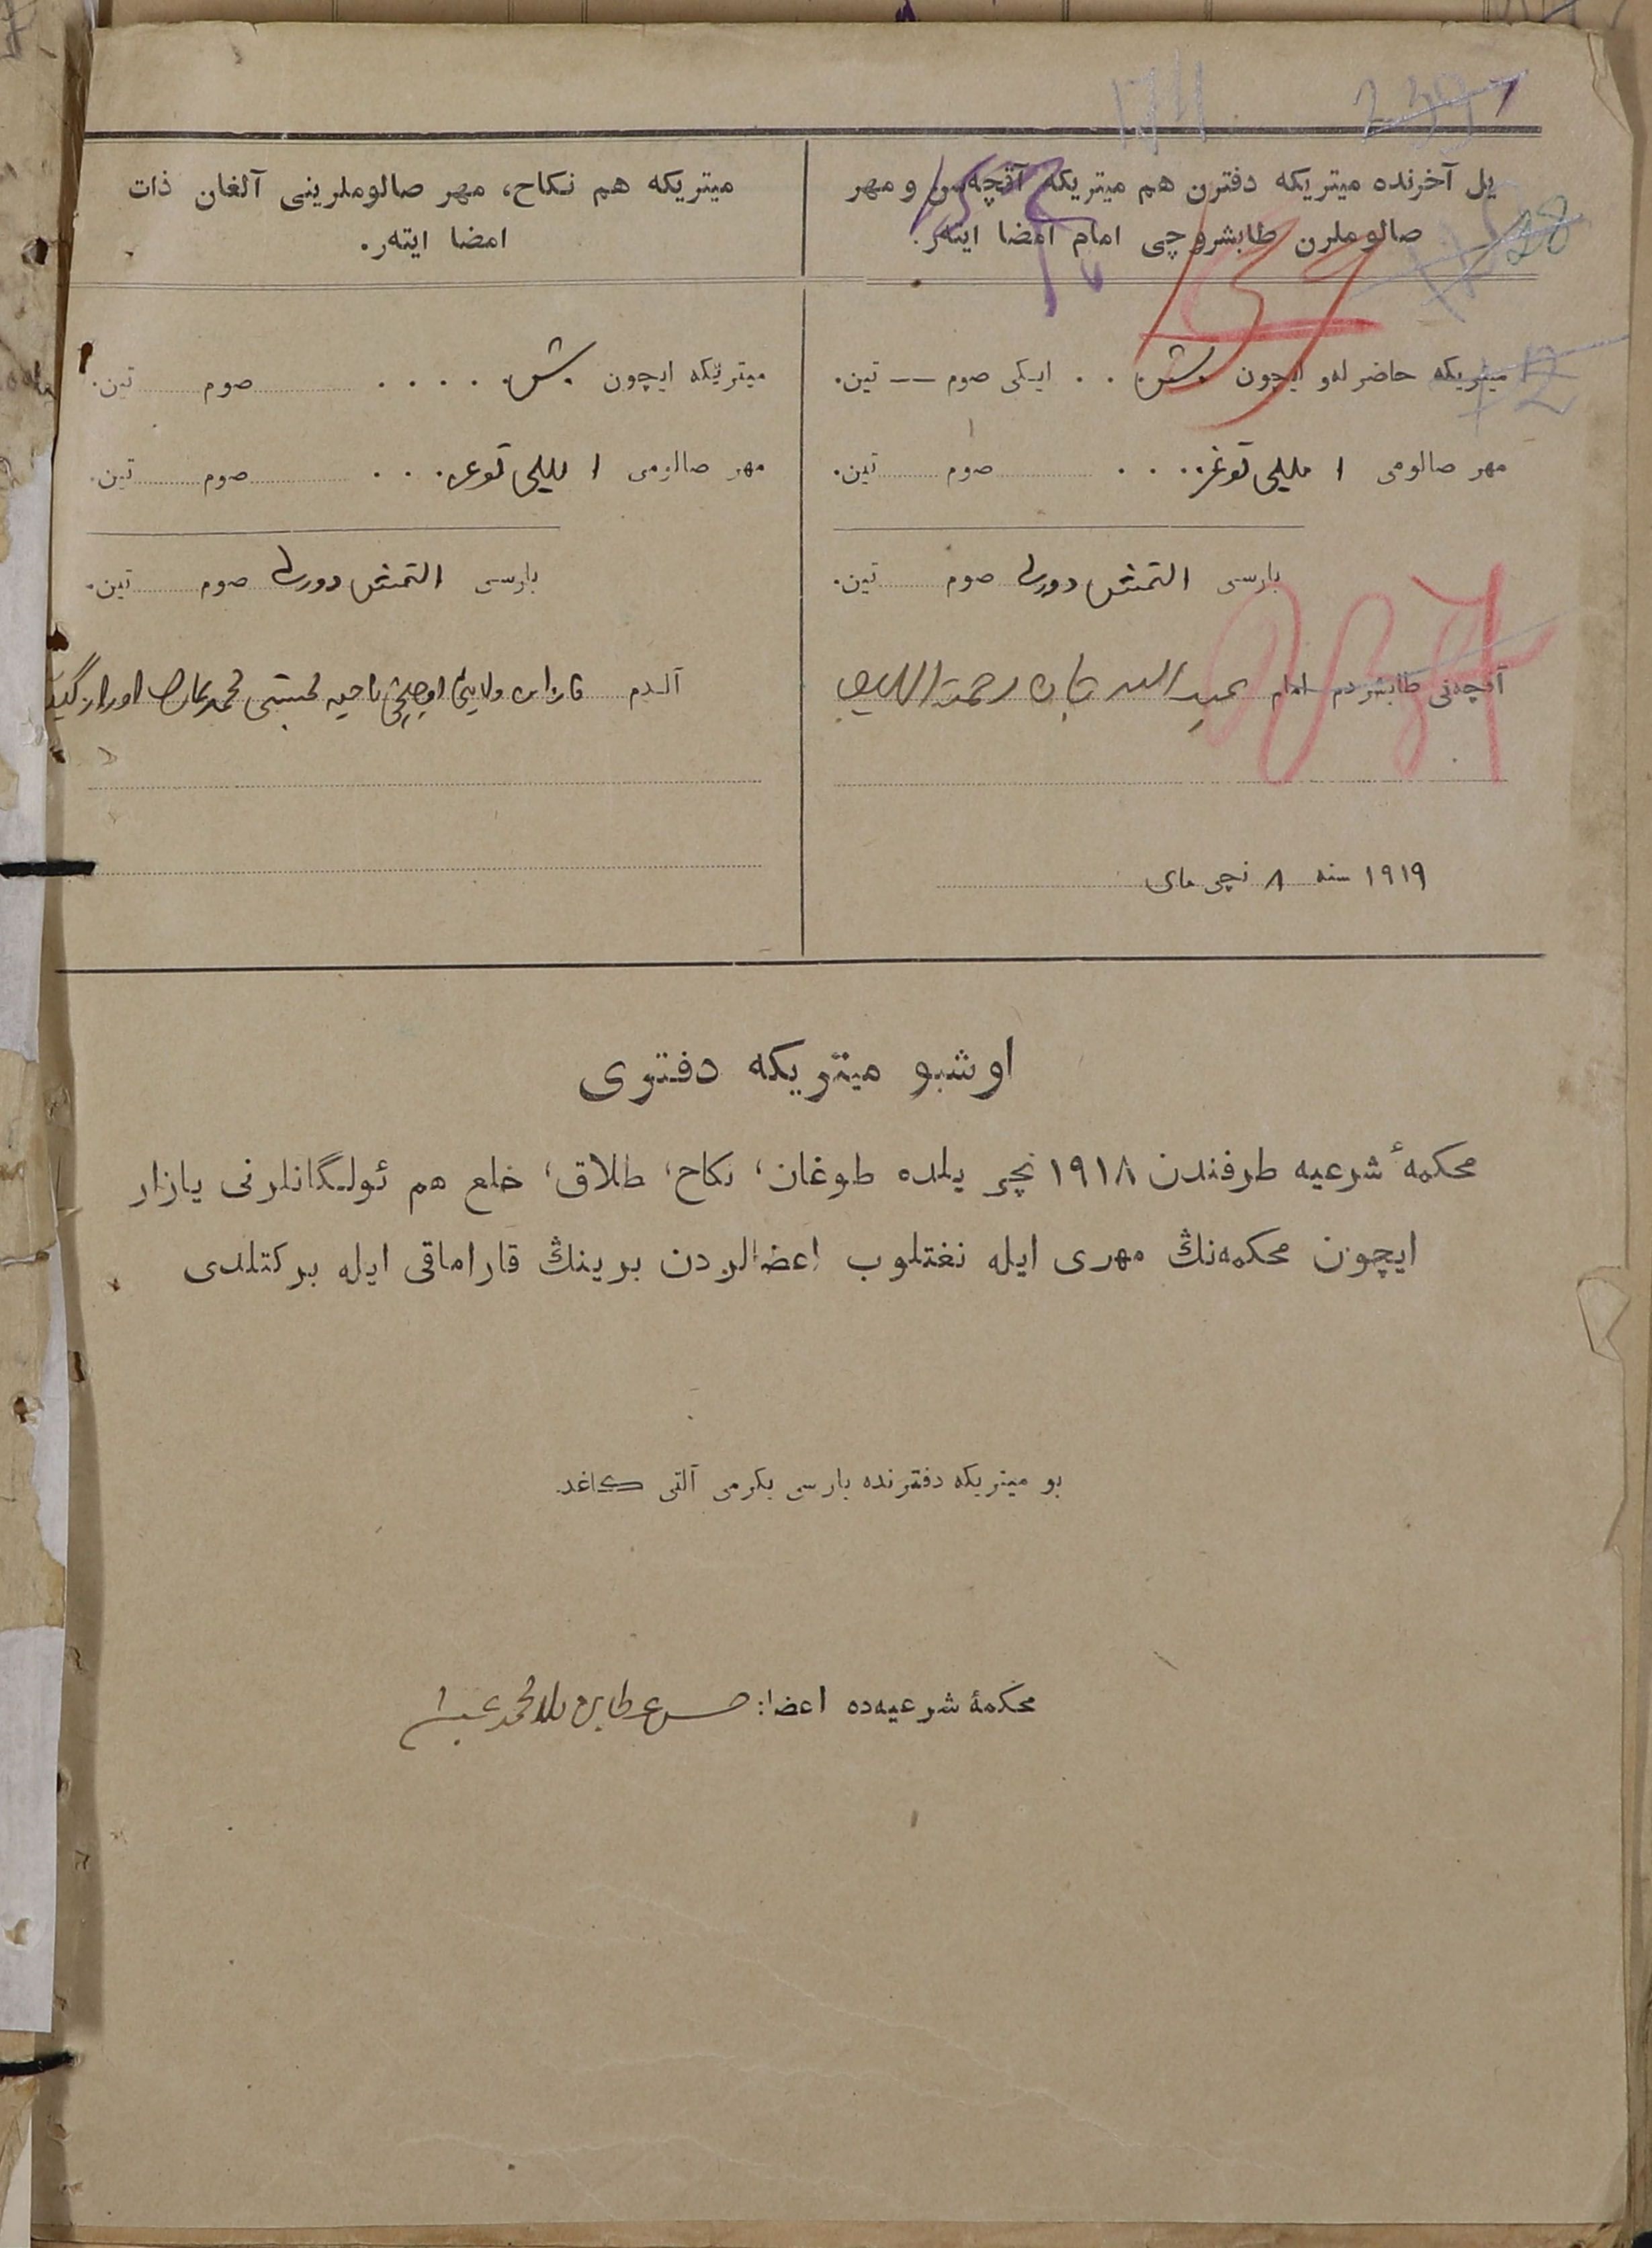 174 239
28
157
12
237
یل آخرنده میتریکه دفترن هم میتریکه آقچه‌سن و مهر
صالوملرن طابشروچی امام امضا ایته‌ر.
میتریکه حاضرله‌و ایچون بش . . ایکی صوم — تین.
مهر صالومی ۱ اللی توغز . . . صوم تین.
بارسی التمش دورت صوم تین.
آقچه‌نی طابشردم امام عبید الله
۱۹۱۹ سنه ۸ نچی مای
میتریکه هم نکاح، مهر صالوملرینی آلغان ذات
امضا ایته‌ر.
میتریکه ایچون بش . . . . . صوم تین.
مهر صالومی ۱ اللی توغز . . . صوم تین.
بارسی التمش دورت صوم تین.
آلدم قازان ولایتی ناحیه محتسبی
اوشبو میتریکه دفتری
محکمهٔ شرعیه طرفندن ۱۹۱۸ نچی یلده طوغان، نکاح، طلاق، خلع هم ئولگانلرنی یازار
ایچون محکمه‌نڭ مهری ایله نغتلوب اعضالردن برینڭ قاراماقی ایله برکتلدی
بو میتریکه دفترنده بارسی یکرمی آلتی کاغد.
محکمهٔ شرعیه‌ده اعضا: